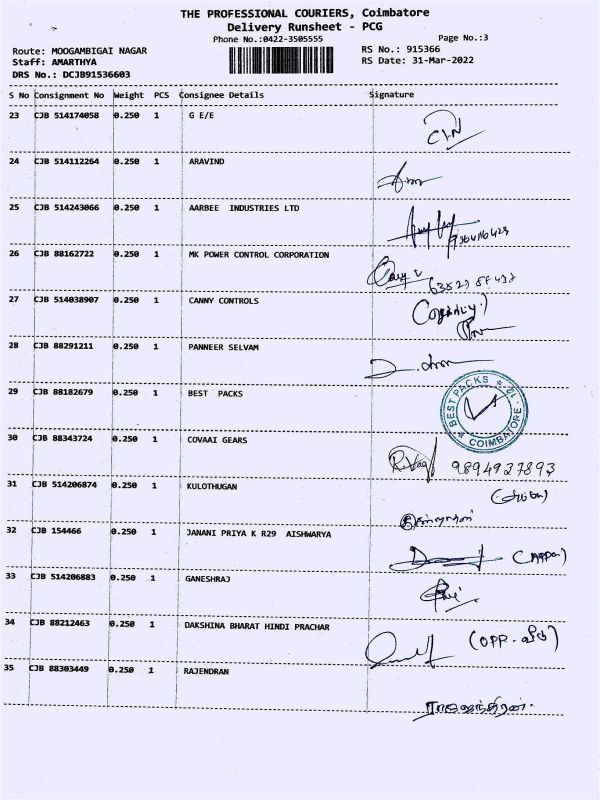 THE PROFESSIONAL COURIERS, Coimbatore
Delivery Runsheet - PCG
Phone No.:0422-3505555
Page No.:3
Route: MOOGAMBIGAI NAGAR
RS No.: 915366
Staff: AMARTHYA
RS Date: 31-Mar-2022
DRS No.: DCJB91536603
S No Consignment No Weight PCS Consignee Details Signature
23 CJB 514174058 0.250 1 G E/E
24 CJB 514112264 0.250 1 ARAVIND
25 CJB 514243066 0.250 1 AARBEE INDUSTRIES LTD
26 CJB 88162722 0.250 1 MK POWER CONTROL CORPORATION
27 CJB 514038907 0.250 1 CANNY CONTROLS
28 CJB 88291211 0.250 1 PANNEER SELVAM
29 CJB 88182679 0.250 1 BEST PACKS
BEST PACKS
COIMBATORE
30 CJB 88343724 0.250 1 COVAAI GEARS
9894927893
31 CJB 514206874 0.250 1 KULOTHUGAN
32 CJB 154466 0.250 1 JANANI PRIYA K R29 AISHWARYA
33 CJB 514206883 0.250 1 GANESHRAJ
34 CJB 88212463 0.250 1 DAKSHINA BHARAT HINDI PRACHAR
35 CJB 88303449 0.250 1 RAJENDRAN